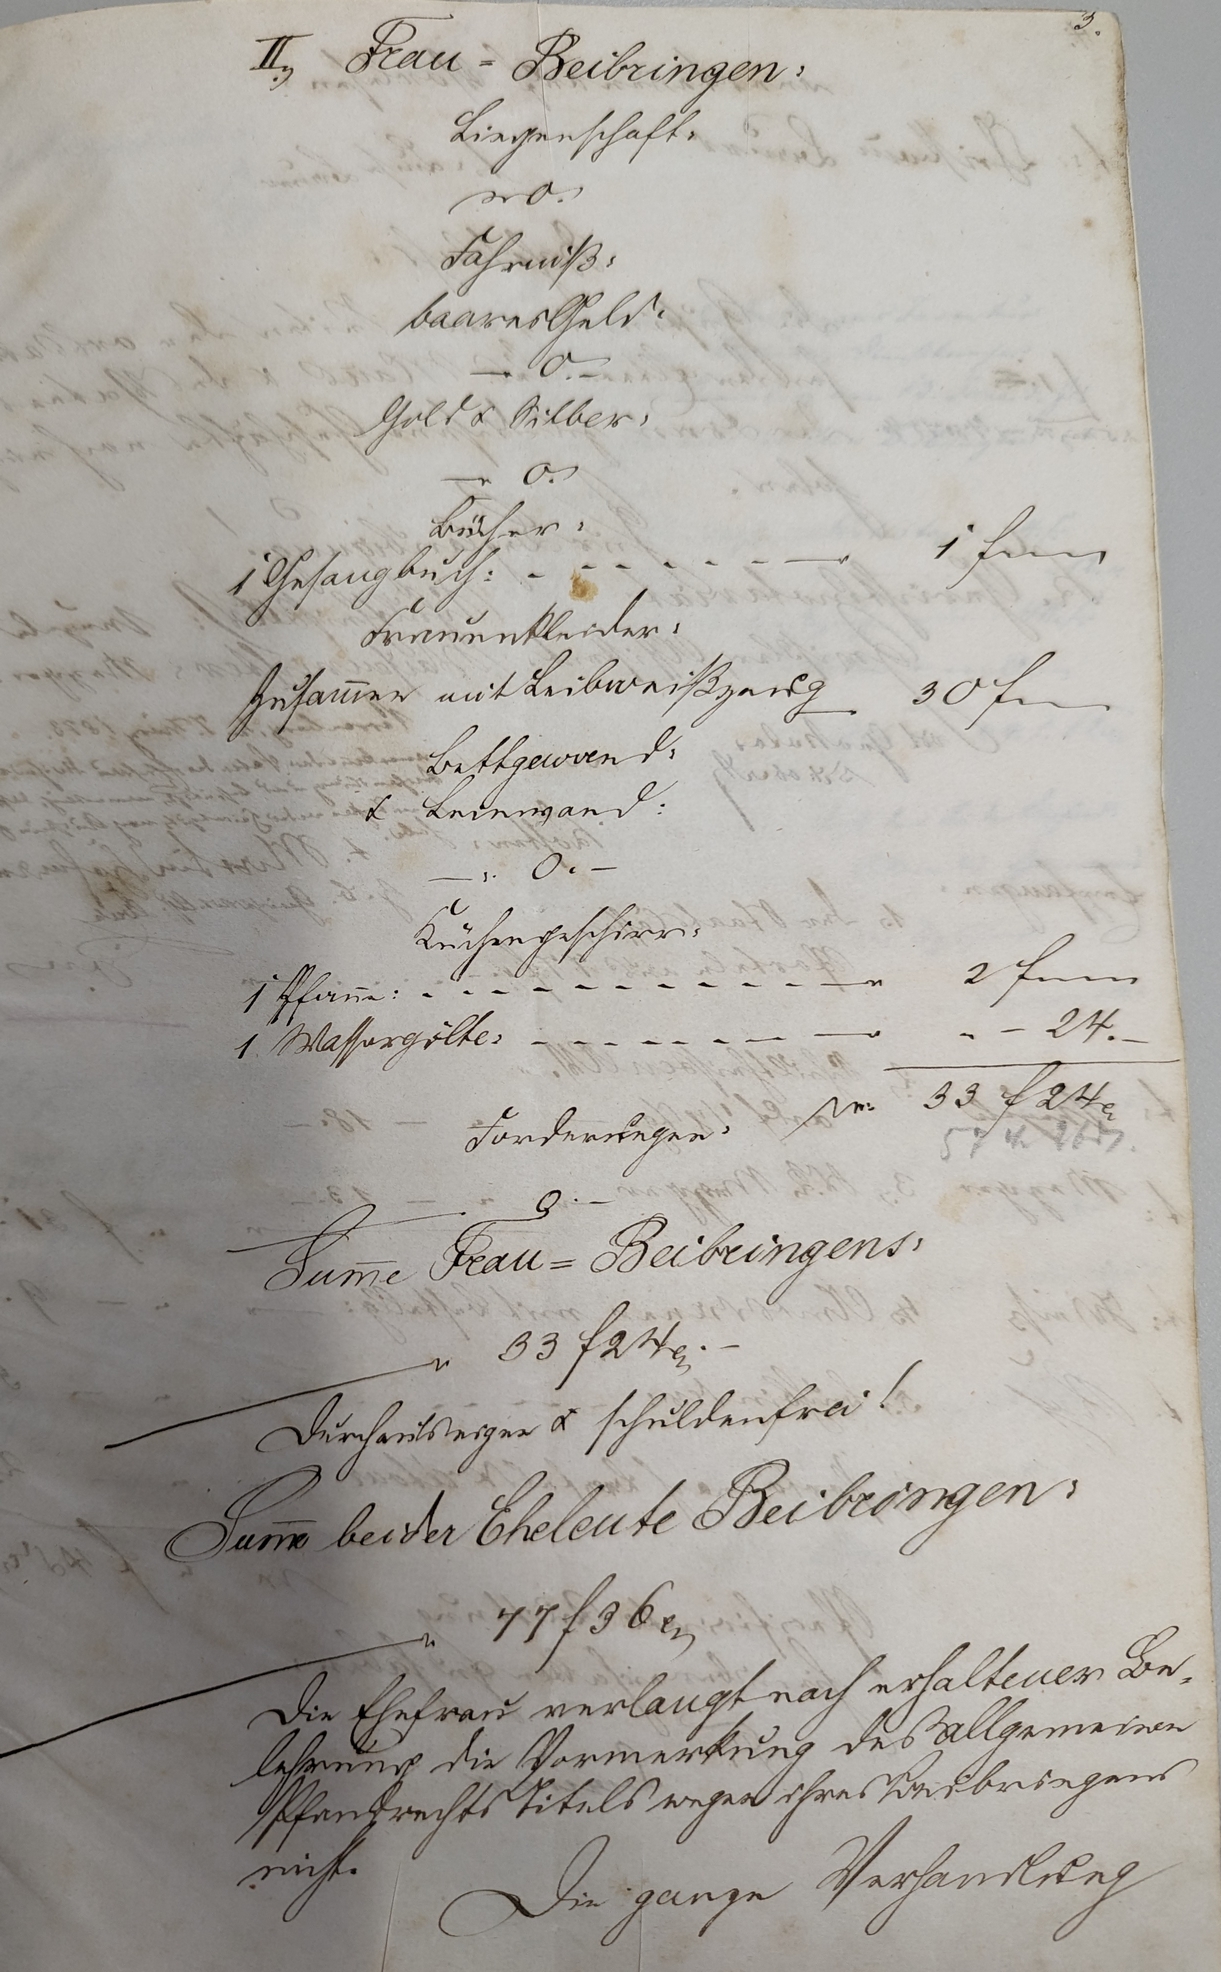 3.
II, Frau = Beibringen:
Liegenschaft:
— 0.
Fahrniß:
baares Geld:
— 0. —
Gold & Silber:
— 0.
Bücher:
1 Gesangbuch: - - - - - - — 1 f —
Frauenkleider:
Zusam̄en mit Leibweißzeug — 30 f —
Bettgewand:
& Leinwand:
— : 0. —
Küchengeschirr:
1 Pfan̄e: - - - - - - - - - - — 2 f —
1 Wassergölte: - - - - - - — - - 24. —
33 f 24 x
Forderungen:
— 0. —
Sum̄e Frau = Beibringens:
33 f 24 x. —
Durchaus eigen & schuldenfrei!
Sum̄e beider Eheleute Beibringen:
77 f 36 x
Die Ehefrau verlangt nach erhaltener Be-
lehrung die Vormerkung des allgemeinen
Pfandrechts Titels wegen ihres Beibringens
nicht.
Die ganze Verhandlung